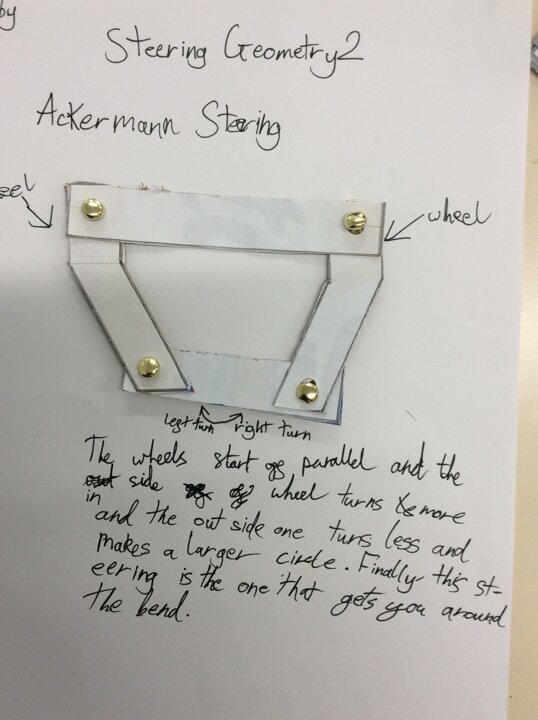 by
Steering Geometry2
Ackermann Steering
eel
wheel
left turn right turn
The wheels start off parallel and the
in side wheel turns more
and the out side one turns less and
makes a larger circle. Finally this st-
eering is the one that gets you around
the bend.